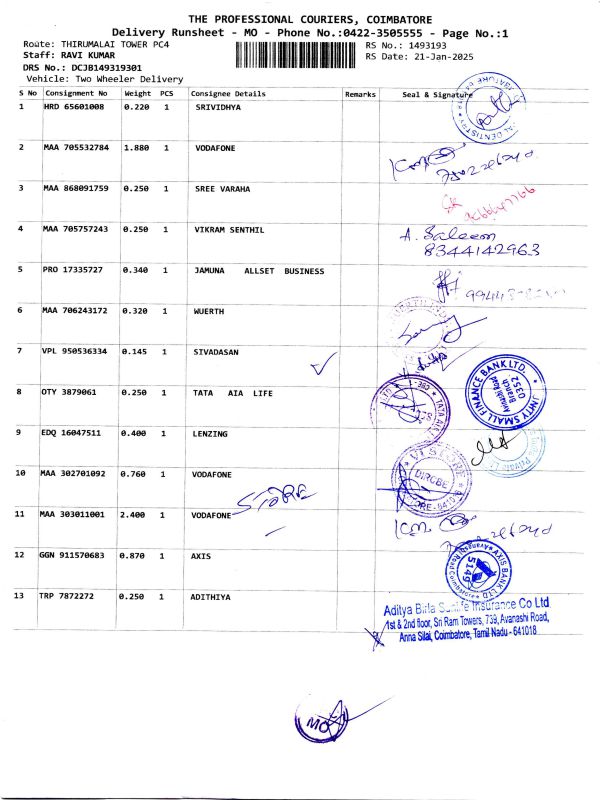 THE PROFESSIONAL COURIERS, COIMBATORE
Delivery Runsheet - MO - Phone No.:0422-3505555 - Page No.:1
Route: THIRUMALAI TOWER PC4
RS No.: 1493193
Staff: RAVI KUMAR
RS Date: 21-Jan-2025
DRS No.: DCJB149319301
Vehicle: Two Wheeler Delivery
S No Consignment No Weight PCS Consignee Details Remarks Seal & Signature
1 HRD 65601008 0.220 1 SRIVIDHYA
2 MAA 705532784 1.880 1 VODAFONE
3 MAA 868091759 0.250 1 SREE VARAHA
4 MAA 705757243 0.250 1 VIKRAM SENTHIL
A. Saleem
8344142963
5 PRO 17335727 0.340 1 JAMUNA ALLSET BUSINESS
6 MAA 706243172 0.320 1 WUERTH
7 VPL 950536334 0.145 1 SIVADASAN
8 OTY 3879061 0.250 1 TATA AIA LIFE
UNITY SMALL FINANCE BANK LTD.
0352
Branch
Avinashi Road
9 EDQ 16047511 0.400 1 LENZING
10 MAA 302701092 0.760 1 VODAFONE
DIRCBE
11 MAA 303011001 2.400 1 VODAFONE
12 GGN 911570683 0.870 1 AXIS
AXIS BANK LTD
5149
13 TRP 7872272 0.250 1 ADITHIYA
Aditya Birla Sunlife Insurance Co Ltd
1st & 2nd floor, Sri Ram Towers, 739, Avanashi Road,
Anna Silai, Coimbatore, Tamil Nadu - 641018
MO